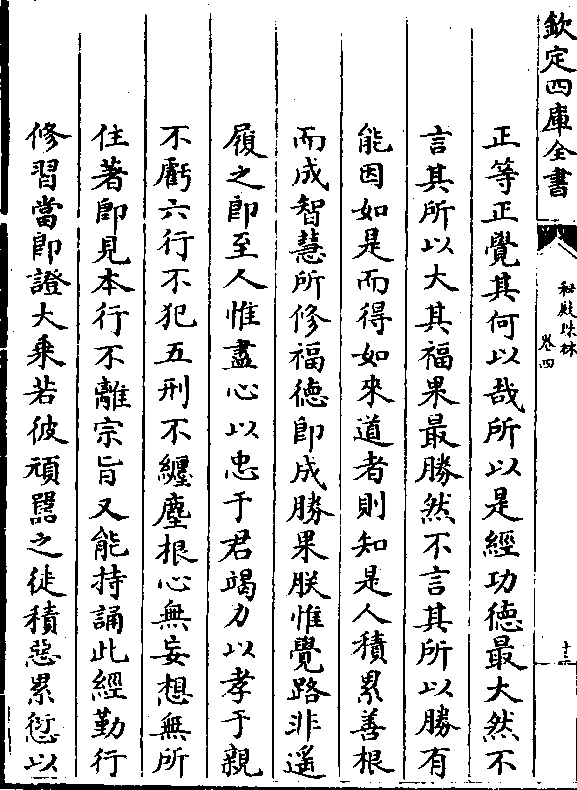 欽定四庫全書
秘殿珠林
卷四
十三
正等正覺其何以哉所以是經功德最大然不
言其所以大其福果最勝然不言其所以勝有
能因如是而得如來道者則知是人積累善根
而成智慧所修福德即成勝果朕惟覺路非遥
履之即至人惟盡心以忠于君竭力以孝于親
不虧六行不犯五刑不纏塵根心無妄想無所
住著即見本行不離宗旨又能持誦此經勤行
修習當即證大乘若彼頑嚚之徒積惡累愆以